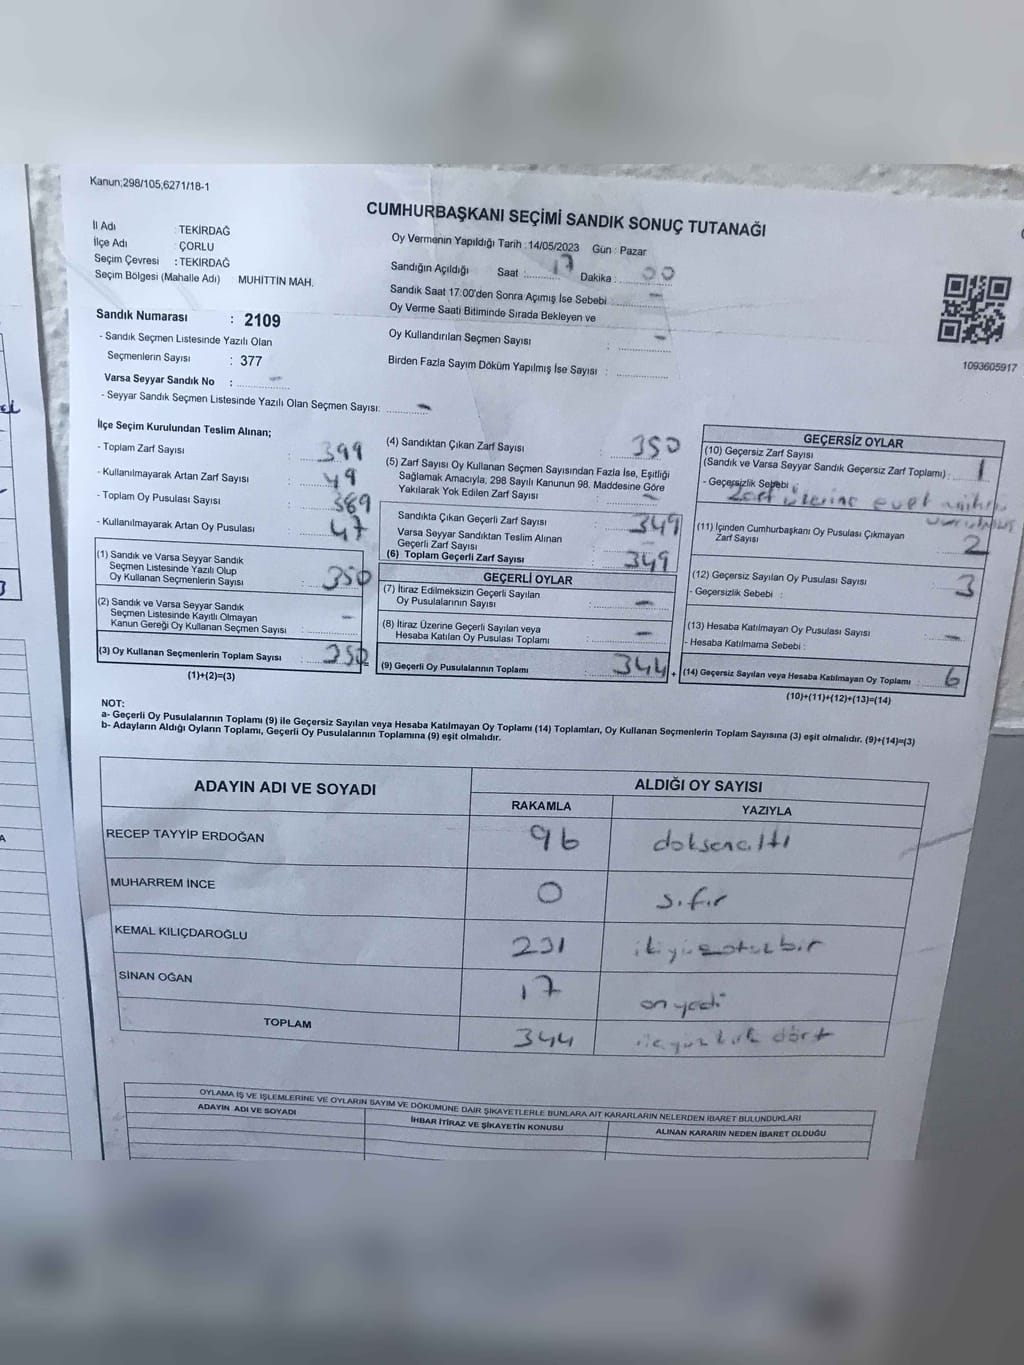 Kanun;298/105,6271/18-1
CUMHURBAŞKANI SEÇİMİ SANDIK SONUÇ TUTANAĞI
İl Adı : TEKİRDAĞ
İlçe Adı : ÇORLU
Seçim Çevresi : TEKİRDAĞ
Seçim Bölgesi (Mahalle Adı) : MUHİTTİN MAH.
Oy Vermenin Yapıldığı Tarih : 14/05/2023 Gün : Pazar
Sandığın Açıldığı Saat : 17 Dakika : 00
Sandık Saat 17:00'den Sonra Açımış İse Sebebi : -
Oy Verme Saati Bitiminde Sırada Bekleyen ve
Oy Kullandırılan Seçmen Sayısı : -
Birden Fazla Sayım Döküm Yapılmış İse Sayısı :
1093605917
Sandık Numarası : 2109
- Sandık Seçmen Listesinde Yazılı Olan
Seçmenlerin Sayısı : 377
Varsa Seyyar Sandık No : -
- Seyyar Sandık Seçmen Listesinde Yazılı Olan Seçmen Sayısı: -
İlçe Seçim Kurulundan Teslim Alınan;
- Toplam Zarf Sayısı : 399
- Kullanılmayarak Artan Zarf Sayısı : 49
- Toplam Oy Pusulası Sayısı : 389
- Kullanılmayarak Artan Oy Pusulası : 47
(1) Sandık ve Varsa Seyyar Sandık
Seçmen Listesinde Yazılı Olup
Oy Kullanan Seçmenlerin Sayısı : 350
(2) Sandık ve Varsa Seyyar Sandık
Seçmen Listesinde Kayıtlı Olmayan
Kanun Gereği Oy Kullanan Seçmen Sayısı : -
(3) Oy Kullanan Seçmenlerin Toplam Sayısı : 350
(1)+(2)=(3)
(4) Sandıktan Çıkan Zarf Sayısı : 350
(5) Zarf Sayısı Oy Kullanan Seçmen Sayısından Fazla İse, Eşitliği
Sağlamak Amacıyla, 298 Sayılı Kanunun 98. Maddesine Göre
Yakılarak Yok Edilen Zarf Sayısı : -
Sandıkta Çıkan Geçerli Zarf Sayısı : 349
Varsa Seyyar Sandıktan Teslim Alınan
Geçerli Zarf Sayısı : -
(6) Toplam Geçerli Zarf Sayısı : 349
GEÇERLİ OYLAR
(7) İtiraz Edilmeksizin Geçerli Sayılan
Oy Pusulalarının Sayısı : -
(8) İtiraz Üzerine Geçerli Sayılan veya
Hesaba Katılan Oy Pusulası Toplamı : -
(9) Geçerli Oy Pusulalarının Toplamı : 344
GEÇERSİZ OYLAR
(10) Geçersiz Zarf Sayısı
(Sandık ve Varsa Seyyar Sandık Geçersiz Zarf Toplamı) : 1
- Geçersizlik Sebebi :
Zarf üzerine evet
(11) İçinden Cumhurbaşkanı Oy Pusulası Çıkmayan
Zarf Sayısı : 2
(12) Geçersiz Sayılan Oy Pusulası Sayısı : 3
- Geçersizlik Sebebi :
(13) Hesaba Katılmayan Oy Pusulası Sayısı : -
- Hesaba Katılmama Sebebi :
(14) Geçersiz Sayılan veya Hesaba Katılmayan Oy Toplamı : 6
(10)+(11)+(12)+(13)=(14)
NOT:
a- Geçerli Oy Pusulalarının Toplamı (9) ile Geçersiz Sayılan veya Hesaba Katılmayan Oy Toplamı (14) Toplamları, Oy Kullanan Seçmenlerin Toplam Sayısına (3) eşit olmalıdır. (9)+(14)=(3)
b- Adayların Aldığı Oyların Toplamı, Geçerli Oy Pusulalarının Toplamına (9) eşit olmalıdır.
ADAYIN ADI VE SOYADI ALDIĞI OY SAYISI
RAKAMLA YAZIYLA
RECEP TAYYİP ERDOĞAN 96 doksenaltı
MUHARREM İNCE 0 sıfır
KEMAL KILIÇDAROĞLU 231 ikiyüzotuzbir
SİNAN OĞAN 17 onyedi
TOPLAM 344 üçyüz kırk dört
OYLAMA İŞ VE İŞLEMLERİNE VE OYLARIN SAYIM VE DÖKÜMÜNE DAİR ŞİKAYETLERLE BUNLARA AİT KARARLARIN NELERDEN İBARET BULUNDUKLARI
ADAYIN ADI VE SOYADI İHBAR İTİRAZ VE ŞİKAYETİN KONUSU ALINAN KARARIN NEDEN İBARET OLDUĞU